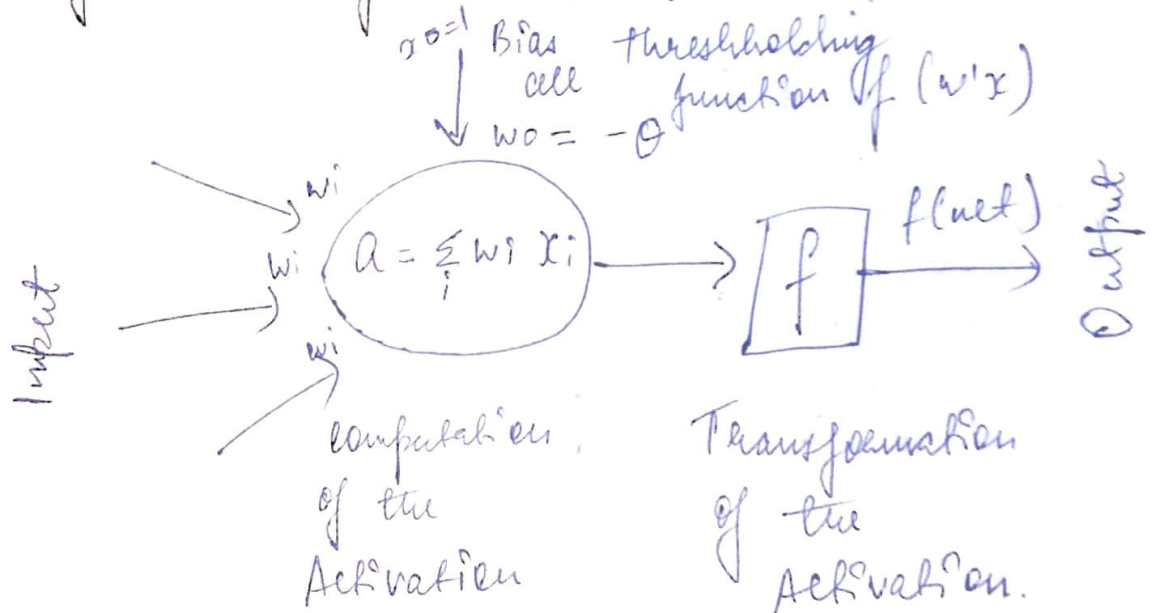 x0=1 Bias thresholding
cell function f (w'x)
w0 = -θ
wi
wi
wi
Input
a = Σ wi xi
i
f
f(net)
Output
computation
of the
Activation
Transformation
of the
Activation.